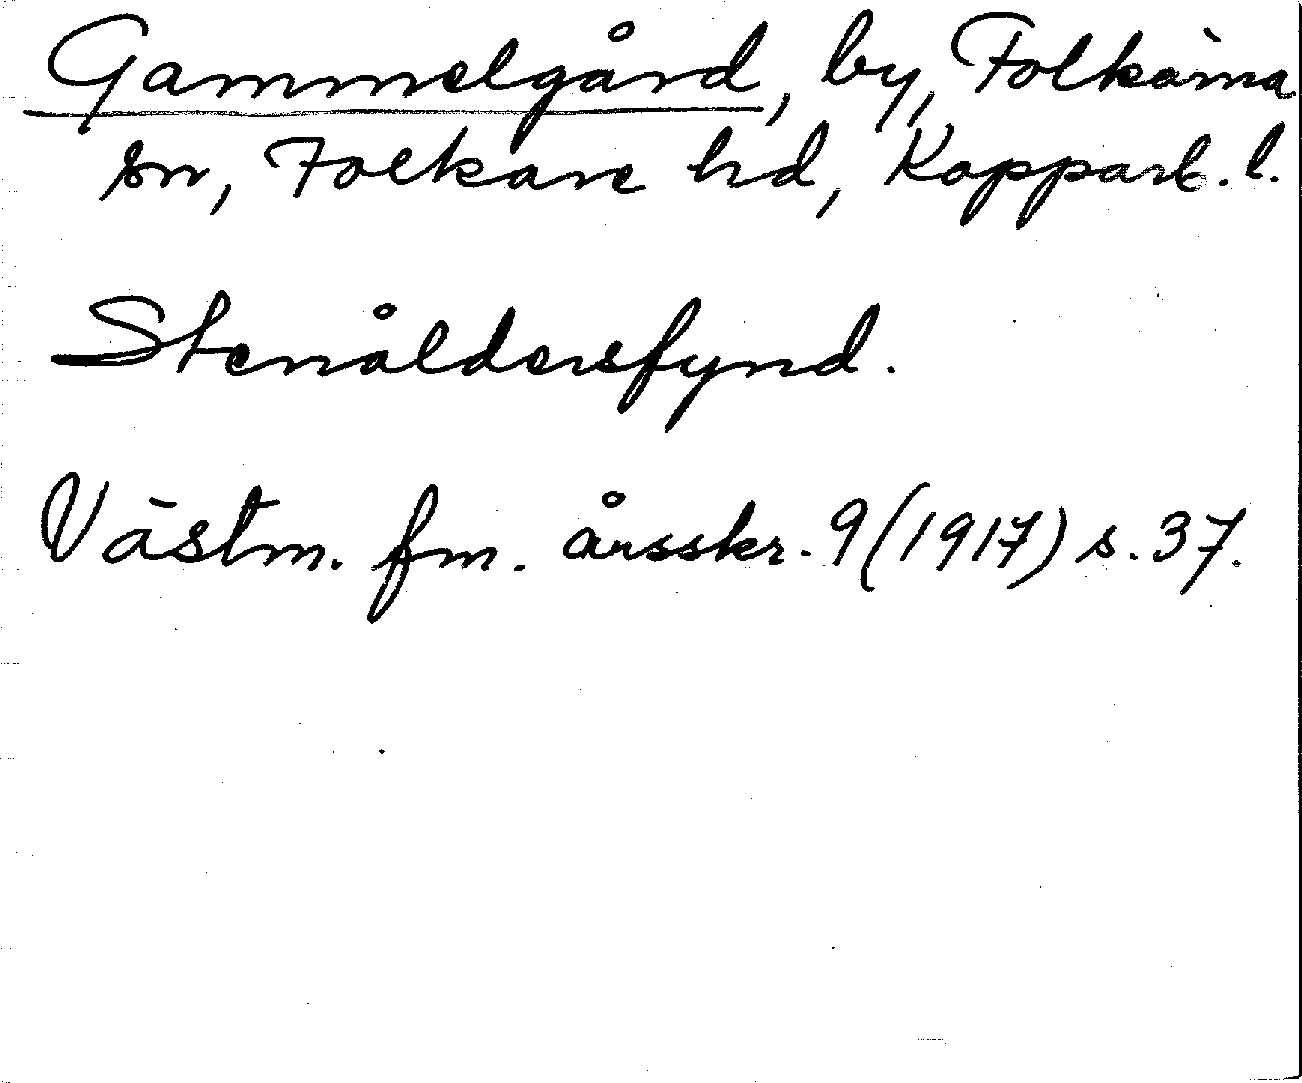 Gammelgård, by, Folkärna
sn, Folkare hd, Kopparb. l.
Stenåldersfynd.
Västm. fm. årsskr. 9 (1917) s. 37.